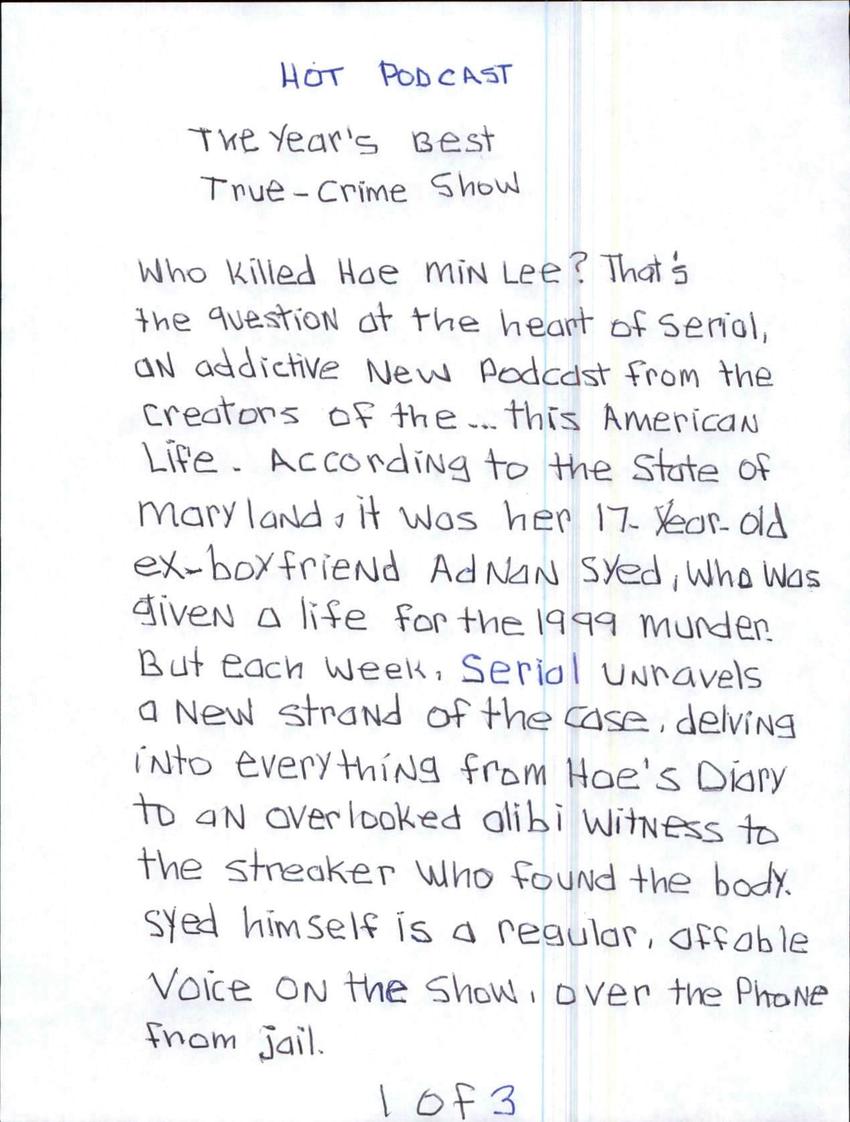 HOT PODCAST
The Year's Best
True-Crime Show
Who killed Hae Min Lee? That's
the question at the heart of Serial,
an addictive New Podcast from the
creators of the... this American
Life. According to the State of
Maryland, it was her 17-Year-old
ex-boyfriend Adnan Syed, Who Was
given a life for the 1999 murder.
But each week, Serial unravels
a New strand of the case, delving
into everything from Hae's Diary
to an overlooked alibi Witness to
the streaker Who found the body.
Syed himself is a regular, affable
Voice on the Show, over the Phone
from jail.
1 of 3